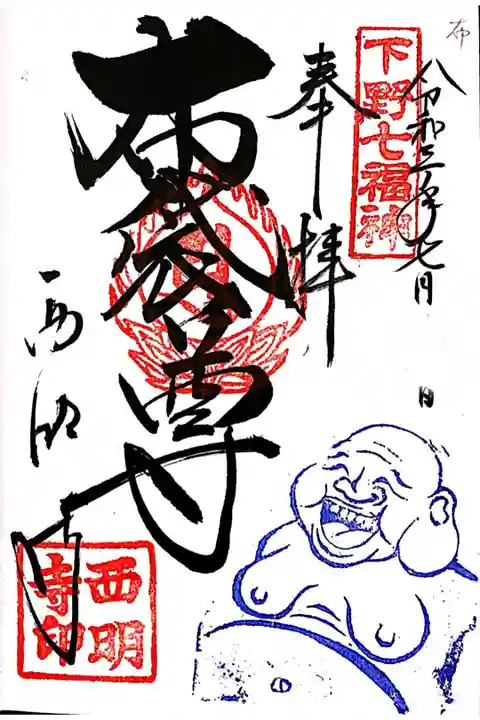 布
下野七福神
令和三年七月
八日
奉拝
布袋尊
西明寺
西明
寺印